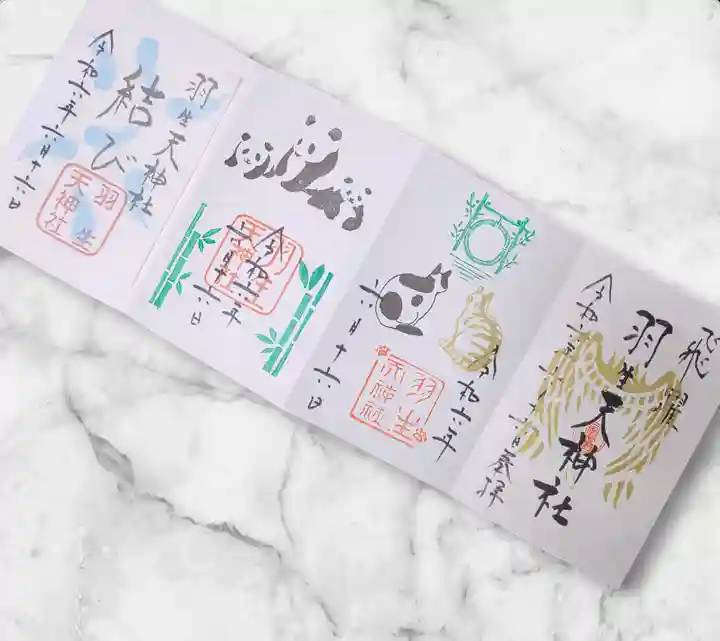 羽生天神社
結び
令和六年六月十六日
羽生
天神社
羽生
天神社
令和六年
六月十六日
令和六年
六月十六日
羽生
天神社
飛躍
羽生天神社